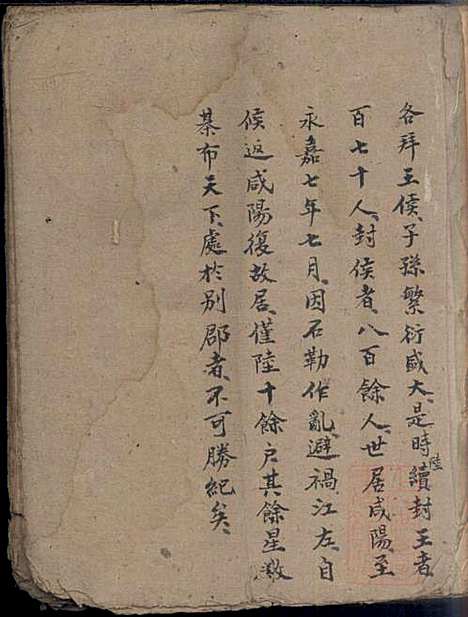 各拜王侯、子孫繁衍盛大、是時陸續封王者
百七十人、封侯者、八百餘人、世居咸陽、至
永嘉七年七月、因石勒作亂、避禍江左、自
侯返咸陽復故居、僅陸十餘户其餘星散
棊布天下、處於别郡者、不可勝紀矣、